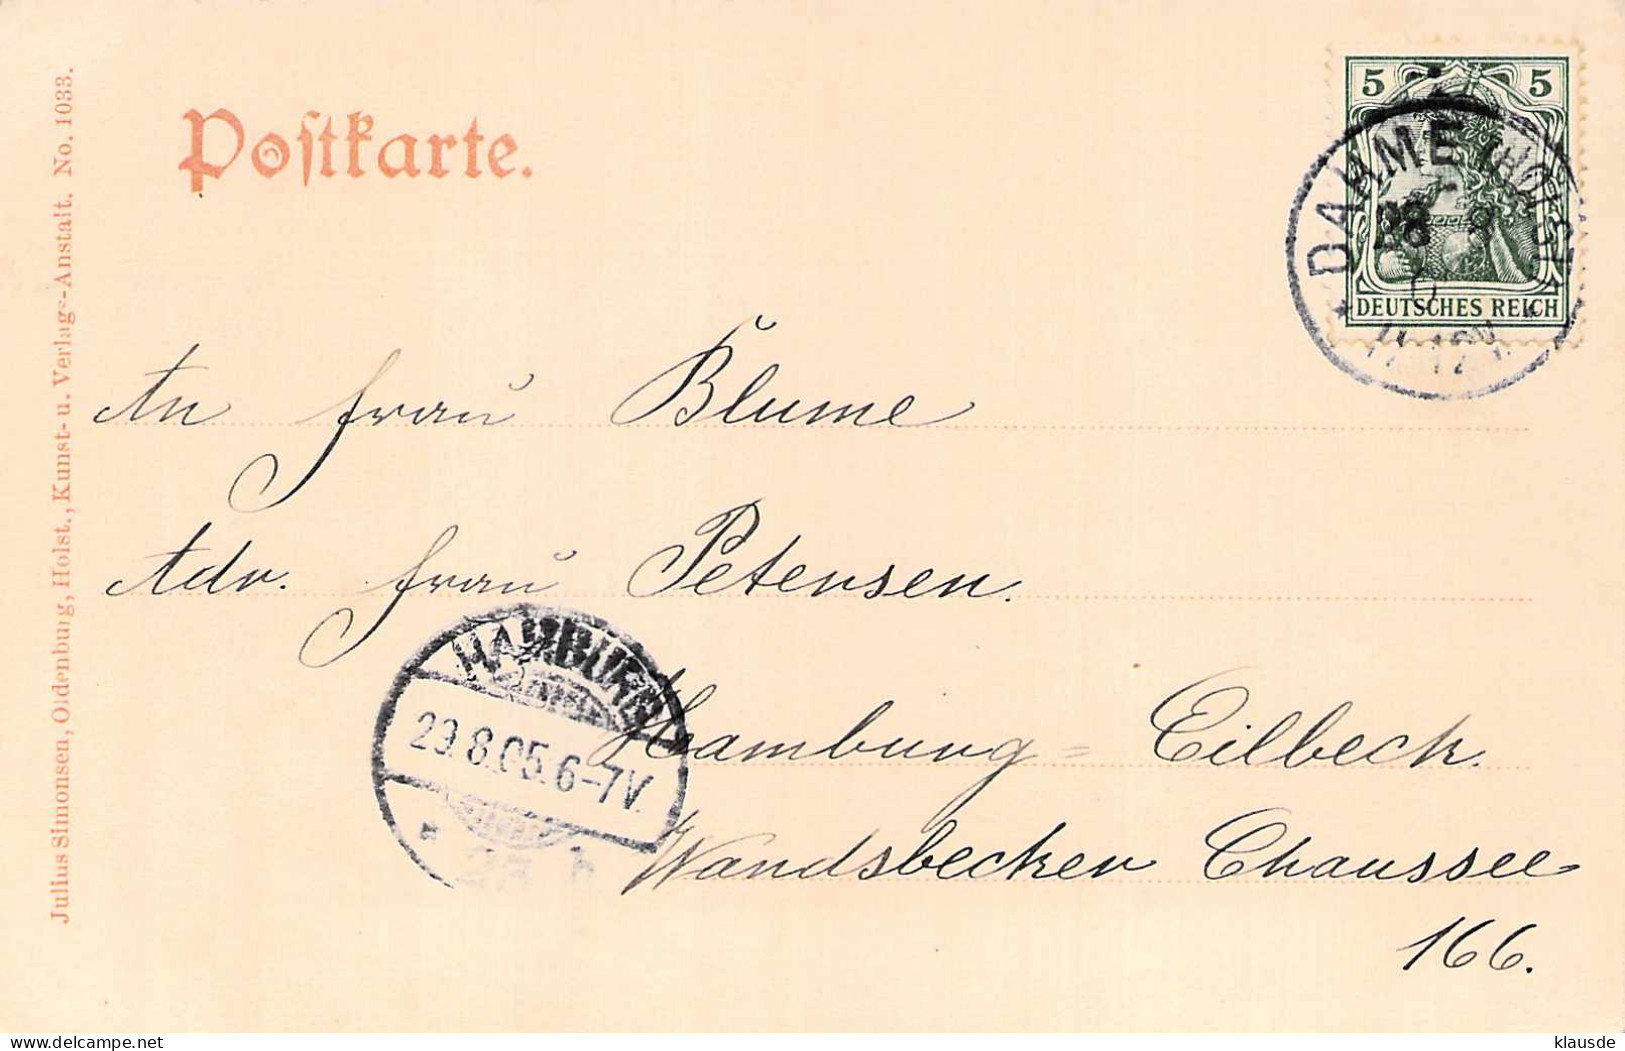 Postkarte.
Julius Simonsen, Oldenburg, Holst., Kunst- u. Verlags-Anstalt. No. 1033.
5 5
DEUTSCHES REICH
DAHME (HOLST)
11-12V.
An Frau Blume
Adr. Frau Petersen.
HAMBURG
29.8.05. 6-7V.
Hamburg = Eilbeck.
Wandsbecker Chaussee
166.
My-WorldCollection.com
klausde